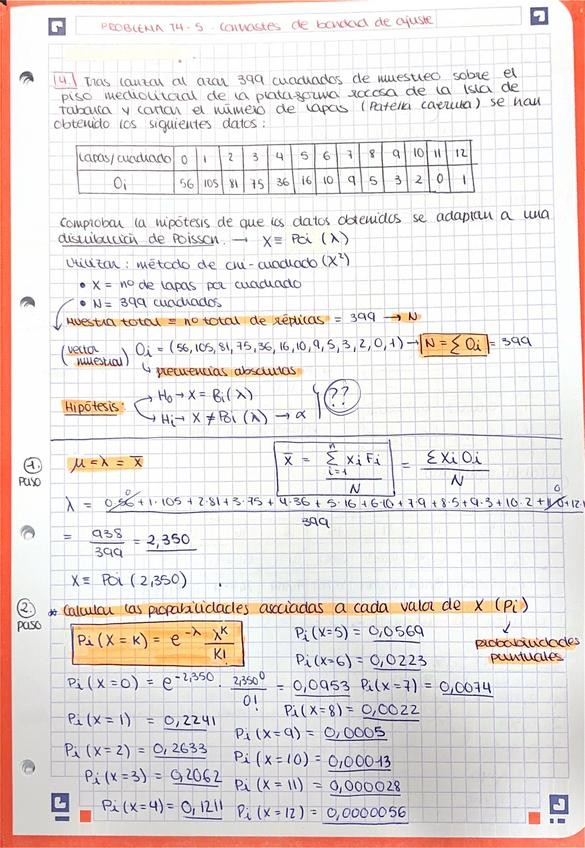 PROBLEMA T4-5. Contrastes de bondad de ajuste
4. Tras lanzar al azar 399 cuadrados de muestreo sobre el
piso mediolitoral de la plataforma rocosa de la Isla de
Tabarca y contar el número de lapas (Patella caerulea) se han
obtenido los siguientes datos:
Lapas/cuadrado 0 1 2 3 4 5 6 7 8 9 10 11 12
Oi 56 105 81 75 36 16 10 9 5 3 2 0 1
Comprobar la hipótesis de que los datos obtenidos se adaptan a una
distribución de Poisson. → X ≡ Poi (λ)
Utilizar: método de chi-cuadrado (X²)
• X = nº de lapas por cuadrado
• N = 399 cuadrados
Muestra total = nº total de réplicas = 399 → N
(vector muestral) Oi = (56, 105, 81, 75, 36, 16, 10, 9, 5, 3, 2, 0, 1) → N = Σ Oi = 399
↳ frecuencias absolutas
Hipótesis: H₀ → X = Poi (λ)
H₁ → X ≠ Poi (λ) → α ??
1. Paso
μ = λ = x̄
x̄ = Σ i=1 n Xi Fi / N = Σ Xi Oi / N
λ = 0·56 + 1·105 + 2·81 + 3·75 + 4·36 + 5·16 + 6·10 + 7·9 + 8·5 + 9·3 + 10·2 + 11·0 + 12·1 / 399
= 938 / 399 = 2,350
X ≡ Poi (2,350)
2. Paso
* Calcular las probabilidades asociadas a cada valor de X (Pi)
↓ probabilidades puntuales
Pi (X = K) = e^-λ λ^K / K!
Pi (X=0) = e^-2,350 · 2,350⁰ / 0! = 0,0953
Pi (X = 1) = 0,2241
Pi (X = 2) = 0,2633
Pi (X = 3) = 0,2062
Pi (X=4) = 0,1211
Pi (X=5) = 0,0569
Pi (X=6) = 0,0223
Pi (X=7) = 0,0074
Pi (X=8) = 0,0022
Pi (X=9) = 0,0005
Pi (X=10) = 0,00013
Pi (X = 11) = 0,000028
Pi (X=12) = 0,0000056